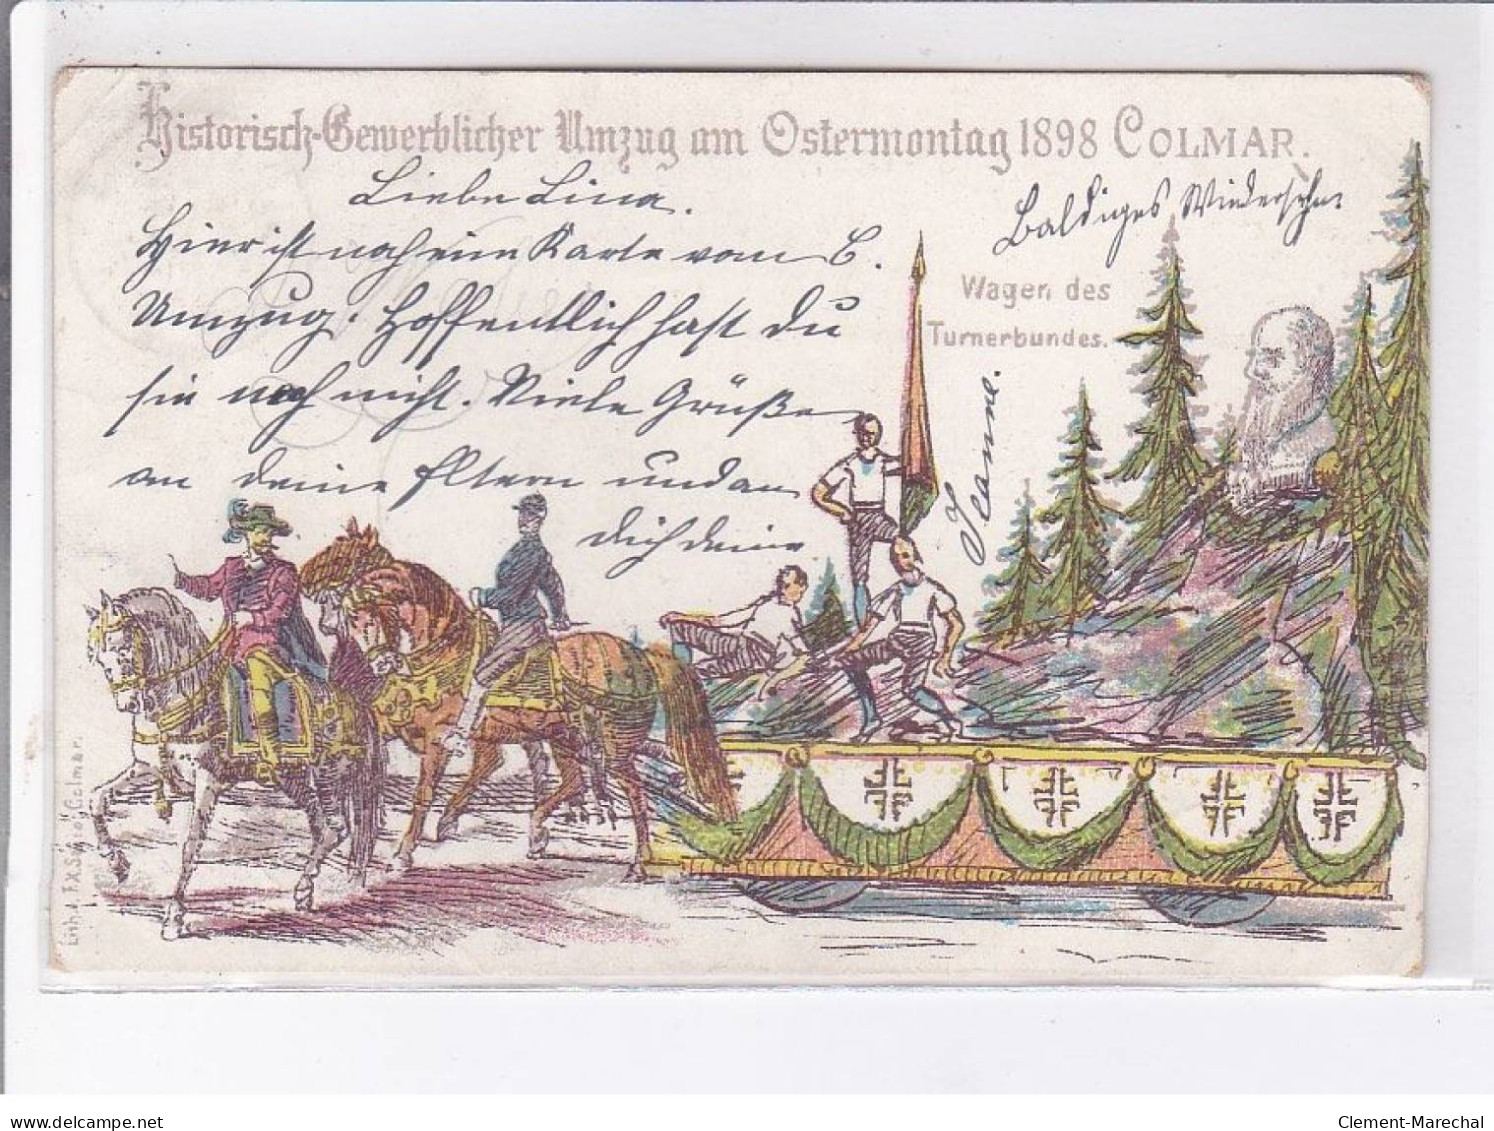 Historisch-Gewerblicher Umzug am Ostermontag 1898 COLMAR.
Liebe Lina.
Baldiges Wiedersehn
Hier ist noch eine Karte vom C.
Umzug. Hoffentlich hast Du
sie noch nicht. Viele Grüße
an deine Eltern und an
Dich deine
Jeanne.
Wagen des
Turnerbundes.
Colmar.
delcampe.net
Clement-Marechal